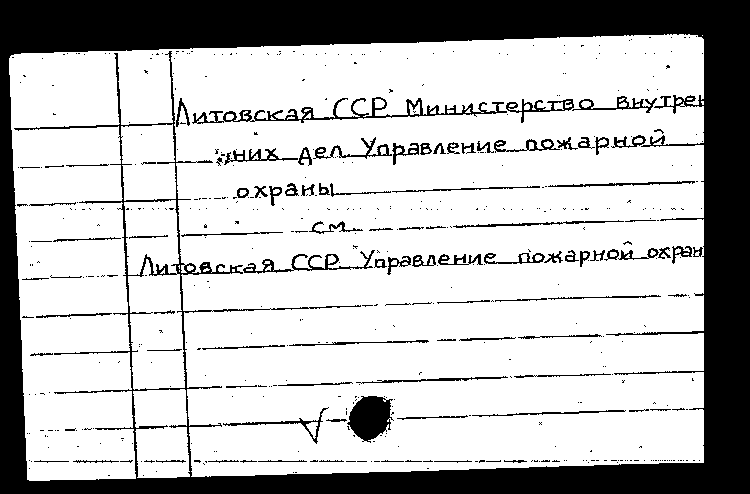 Литовская ССР Министерство внутрен
них дел Управление пожарной
охраны
см.
Литовская ССР Управление пожарной охран